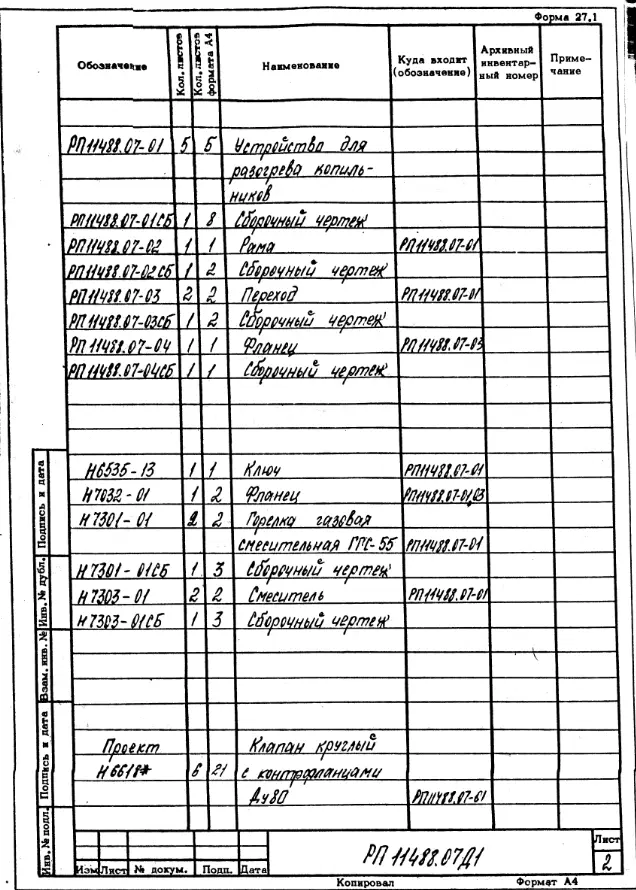 Форма 27.1
Обозначение Кол. листов Кол. листов формата А4 Наименование Куда входит (обозначение) Архивный инвентар- ный номер Приме- чание
РП11488.07-01 5 5 Устройства для
разогрева копиль-
ников
РП11488.07-01СБ 1 8 Сборочный чертеж
РП11488.07-02 1 1 Рама РП11488.07-01
РП11488.07-02СБ 1 2 Сборочный чертеж
РП11488.07-03 2 2 Переход РП11488.07-01
РП11488.07-03СБ 1 2 Сборочный чертеж
РП11488.07-04 1 1 Фланец РП11488.07-03
РП11488.07-04СБ 1 1 Сборочный чертеж
Н6535-13 1 1 Ключ РП11488.07-01
Н7032-01 1 2 Фланец РП11488.07-01,03
Н7301-01 2 2 Горелка газовая
смесительная ГГС-55 РП11488.07-01
Н7301-01СБ 1 3 Сборочный чертеж
Н7303-01 2 2 Смеситель РП11488.07-01
Н7303-01СБ 1 3 Сборочный чертеж
Проект Клапан круглый
Н6618* 6 21 с контрфланцами
Ду80 РП11488.07-01
Инв. № подл. Подпись и дата Взам. инв. № Инв. № дубл. Подпись и дата
Изм Лист № докум. Подп. Дата
РП 11488.07Д1
Лист
2
Копировал Формат А4